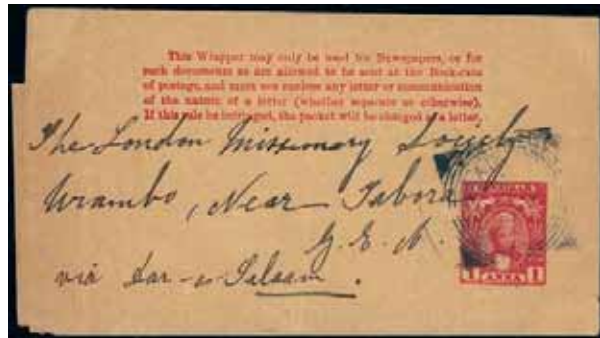 This Wrapper may only be used for Newspapers, or for
such documents as are allowed to be sent at the Book-rate
of postage, and must not enclose any letter or communication
of the nature of a letter (whether separate or otherwise).
If this rule be infringed, the packet will be charged as a letter.
The London Missionary Society
Urambo, Near Tabora
G. E. A.
via Dar-es-Salaam.
ZANZIBAR
1 ANNA 1